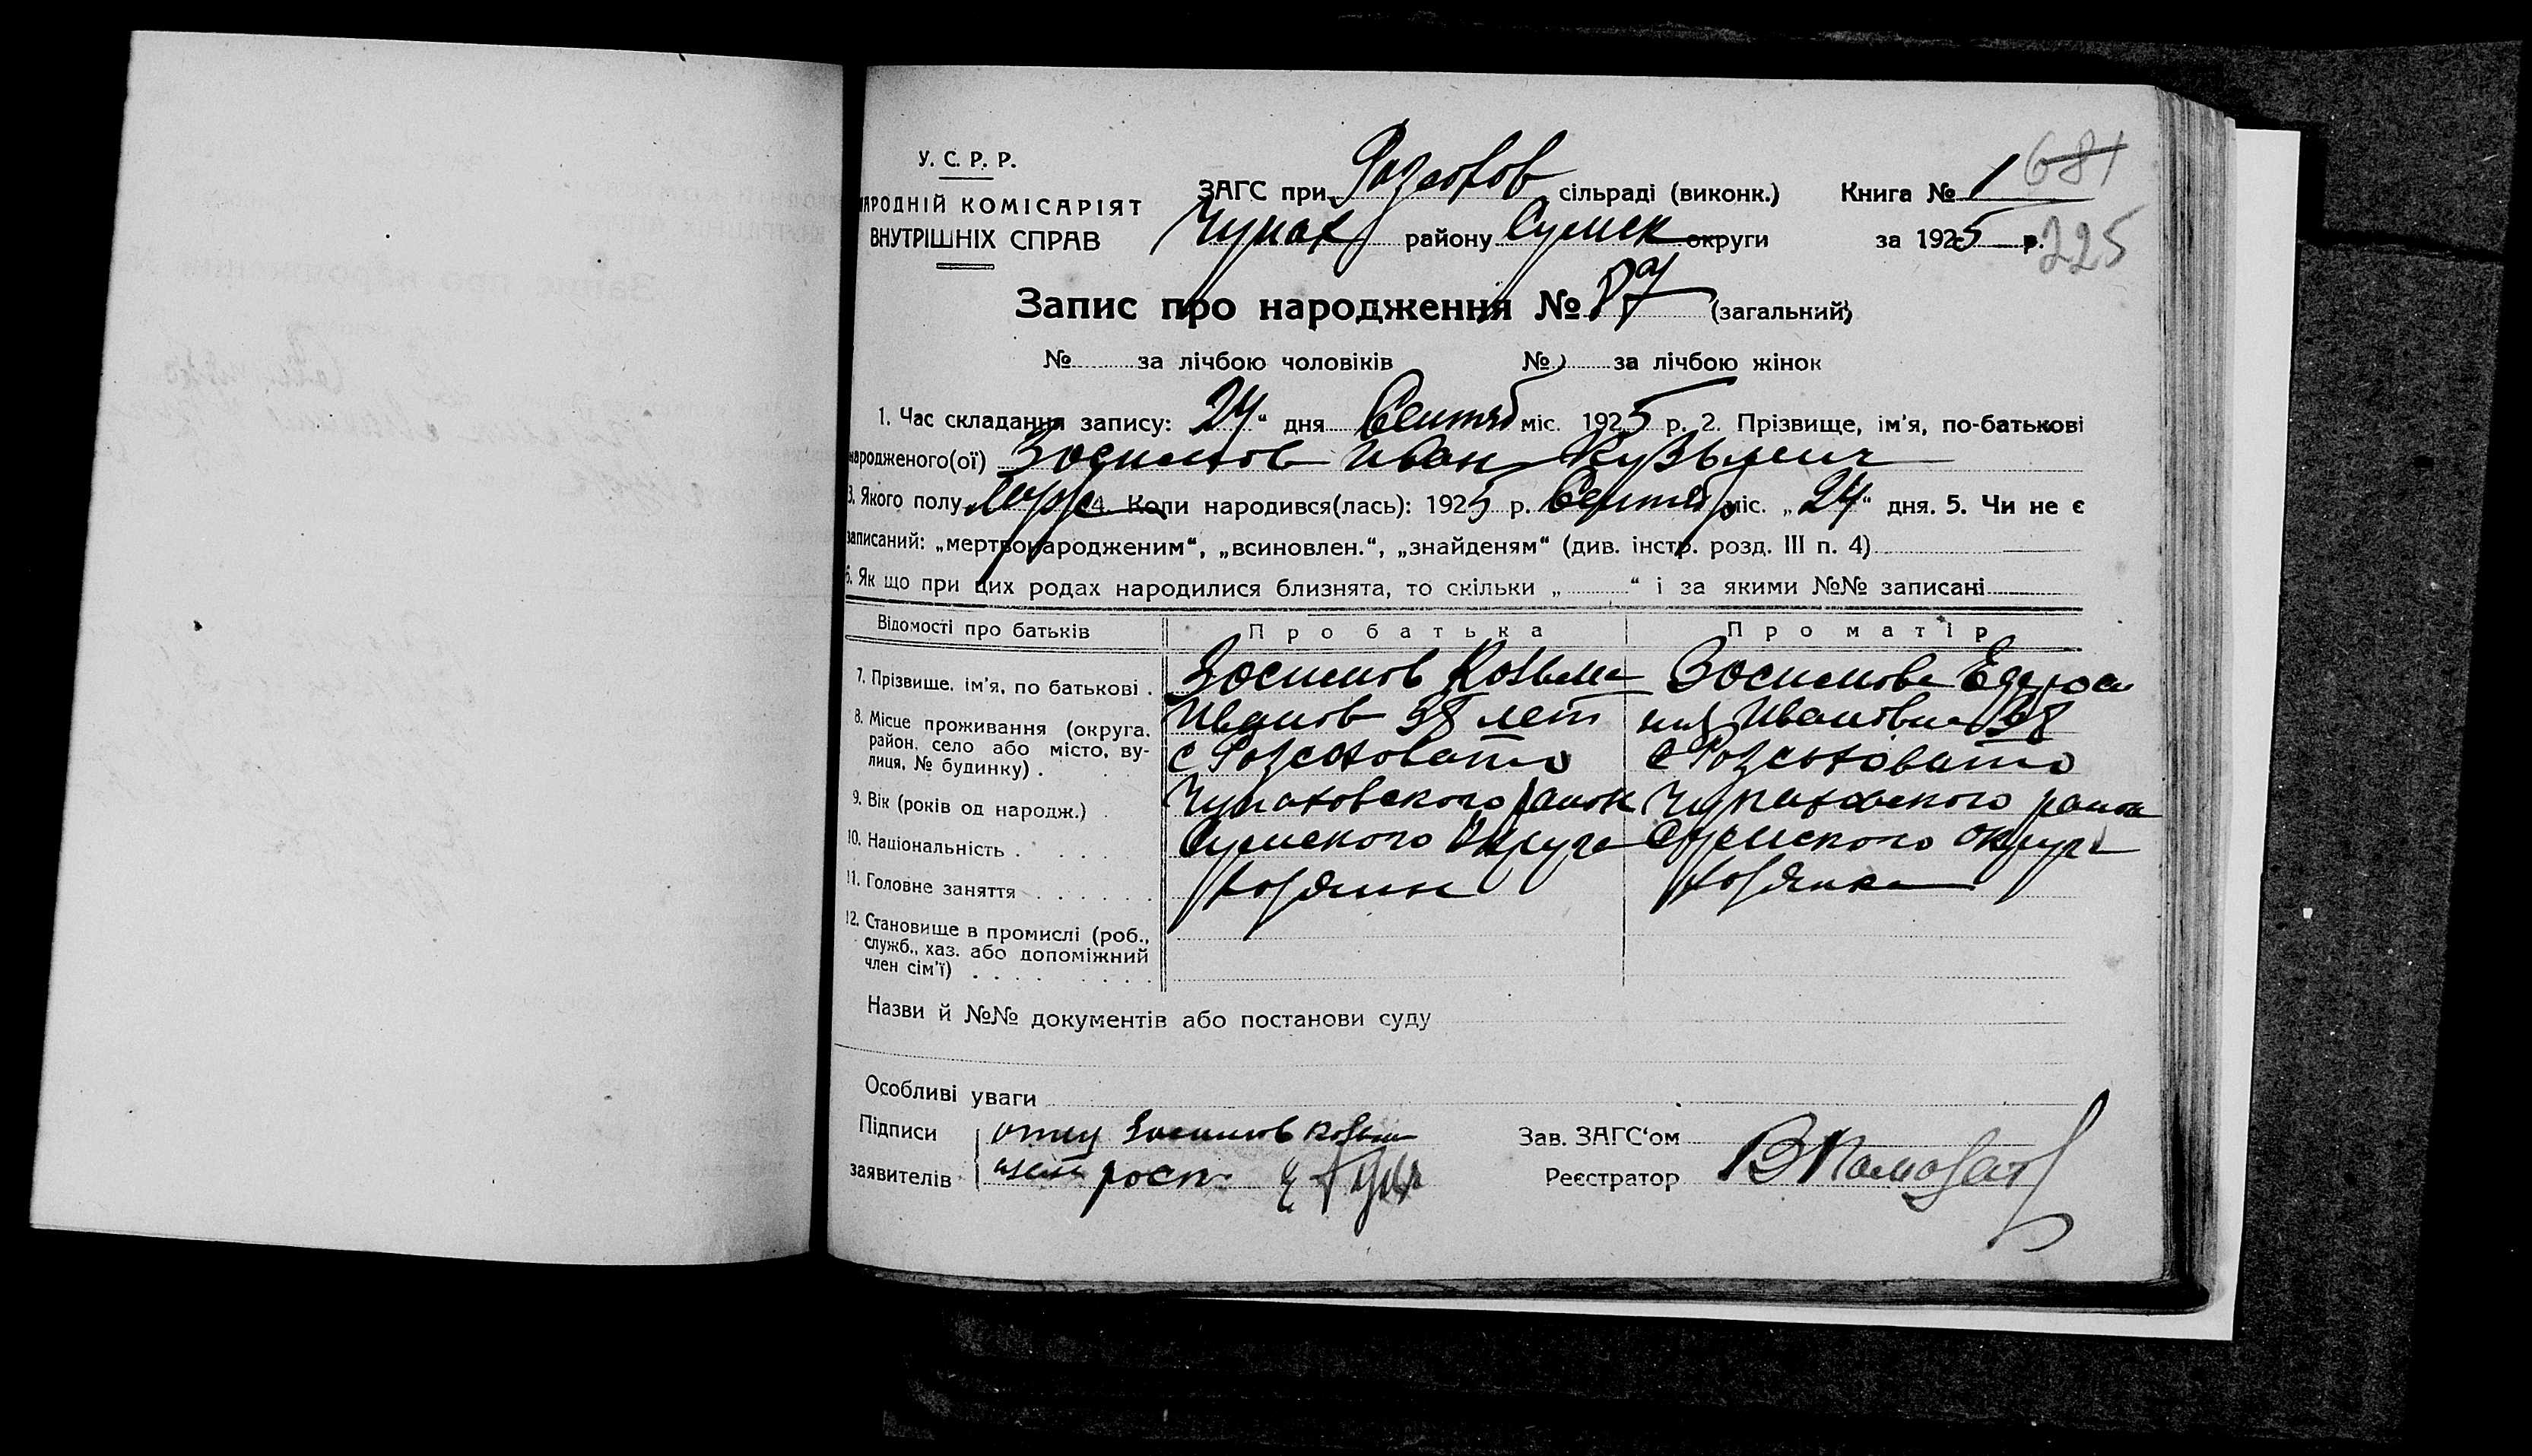 У. С. Р. Р.
НАРОДНІЙ КОМІСАРІЯТ
ВНУТРІШНІХ СПРАВ
ЗАГС при Розсохов сільраді (виконк.)
Чупах району Сумск округи
Книга № 1 681
за 1925 р. 225
Запис про народження № (загальний)
№ за лічбою чоловіків № за лічбою жінок
1. Час складання запису: 24 “ дня Сентяб міс. 1925 р. 2. Прізвище, ім'я, по-батькові
народженого(ої) Зосимов Иван Кузьмич
3. Якого полу Муж 4. Коли народився(лась): 1925 р. Сентяб міс. „ 24 “ дня. 5. Чи не є
записаний: „мертвонародженим“, „всиновлен.“, „знайденям“ (див. інстр. розд. III п. 4)
6. Як що при цих родах народилися близнята, то скільки „ “ і за якими №№ записані
Відомості про батьків Про батька Про матір
7. Прізвище, ім'я, по батькові . Зосимов Козьма Зосимова
8. Місце проживання (округа, Иванов 38 лет Ивановна 38
район, село або місто, ву- с Розсоховато с Розсоховато
лиця, № будинку) .
9. Вік (років од народж.) . Чупаховского район Чупаховского район
10. Національність . . . . Сумского Округа Сумского округа
11. Головне заняття . . . . . . хозяин хозяика
12. Становище в промислі (роб.,
служб., хаз. або допоміжний
член сім'ї) . . . . . . .
Назви й №№ документів або постанови суду
Особливі уваги
Підписи отец Зосимов Козьма
заявителів
Зав. ЗАГС‘ом
Реєстратор